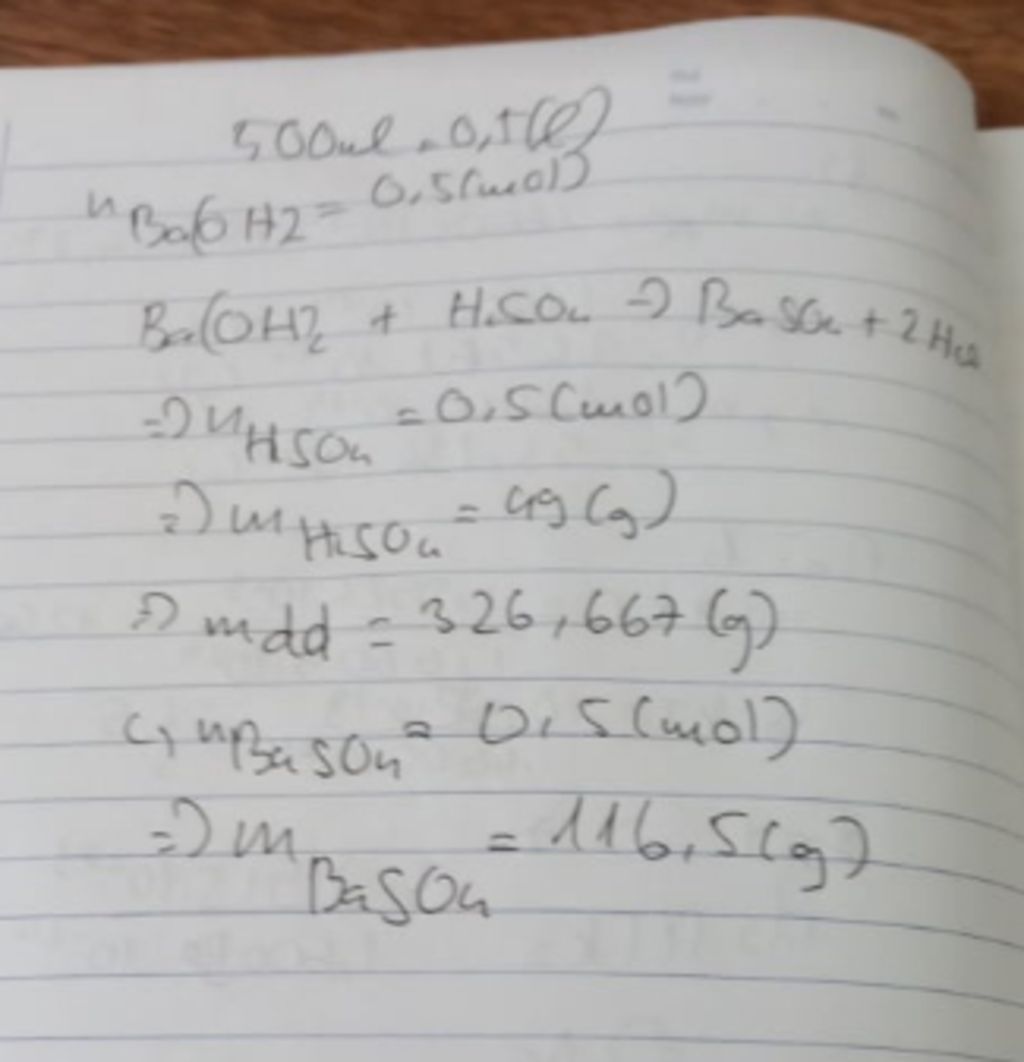 500ml = 0,5(l)
nBa(OH)2 = 0,5(mol)
Ba(OH)2 + H2SO4 => BaSO4 + 2H2O
=> nHSO4 = 0,5(mol)
=> mH2SO4 = 49(g)
=> mdd = 326,667(g)
c, nBaSO4 = 0,5(mol)
=> mBaSO4 = 116,5(g)